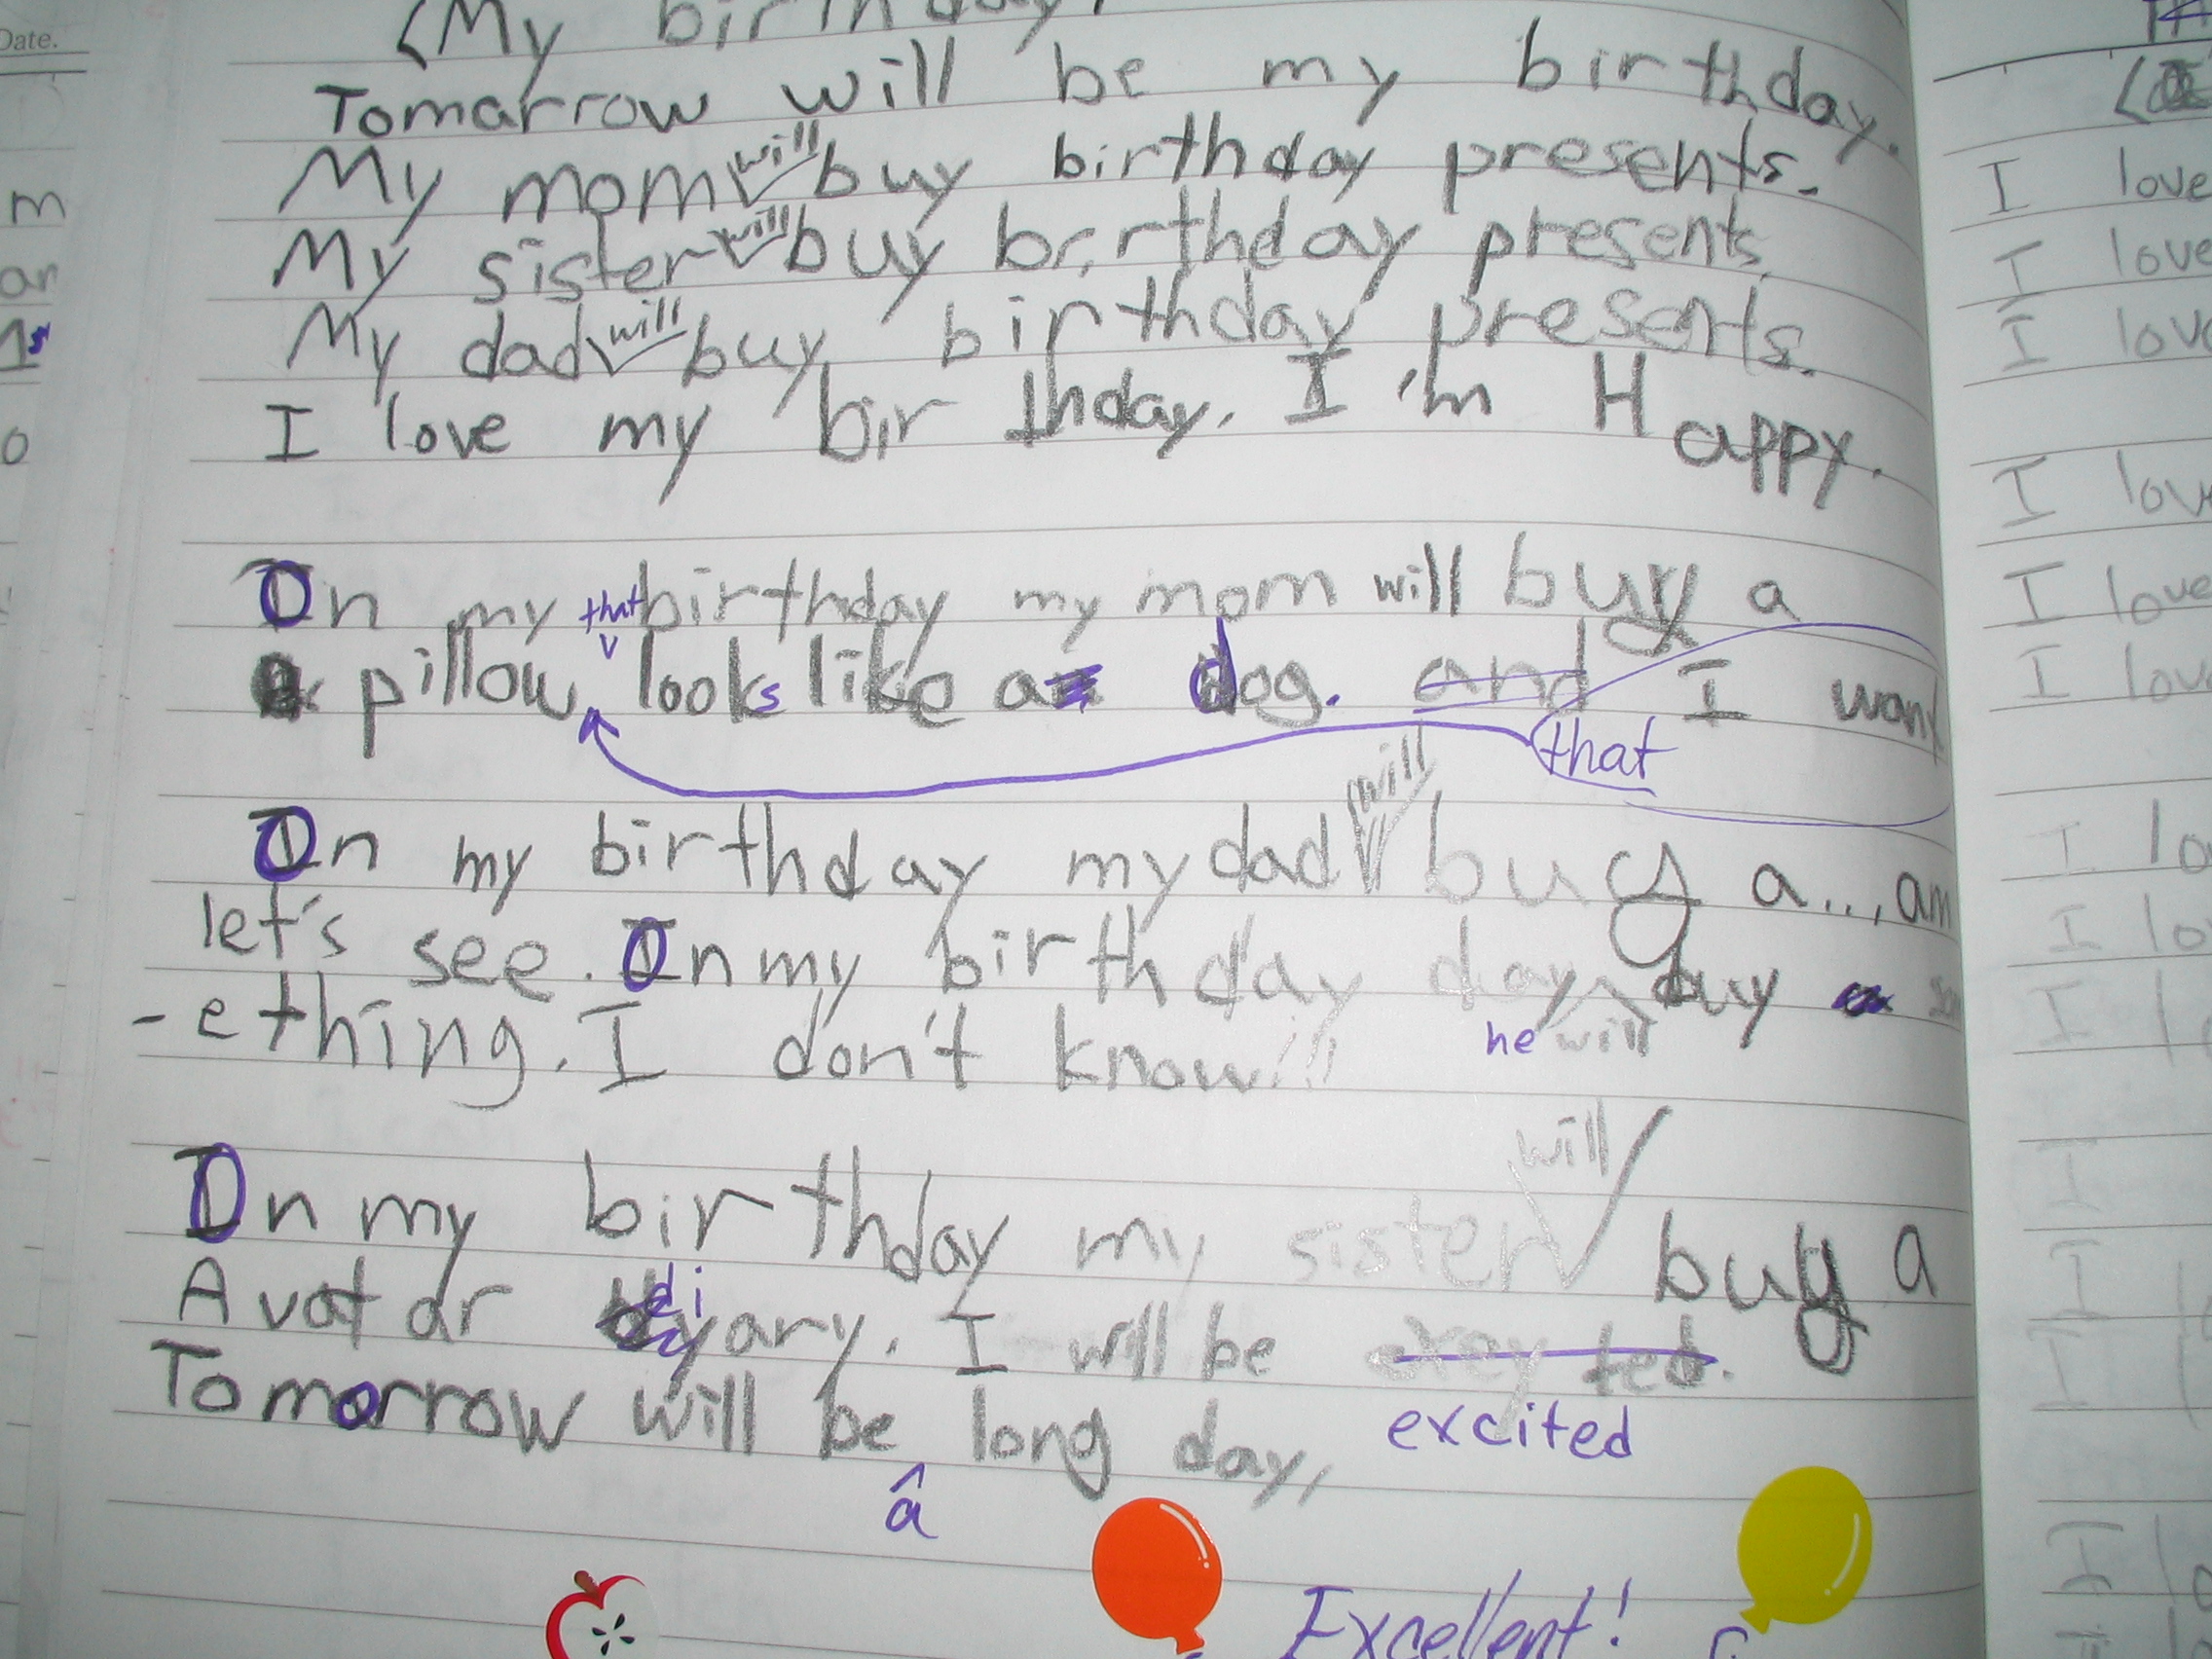 Date.
(My birthday)
Tomarrow will be my birthday.
My mom will buy birthday presents.
My sister will buy birthday presents.
My dad will buy birthday presents.
I love my birthday. I'm Happy.
On my birthday my mom will buy a
that
pillow looks like a dog. and I want
that
will
On my birthday my dad buy a..., am
let's see. On my birthday day buy
he will
-ething. I don't know!!!
will
On my birthday my sister buy a
di
Avatar yary. I will be
Tomorrow will be long day,
excited
a
Excellent!
m
an
o
I love
I love
I love
I love
I love
I love
I lo
I lo
I l